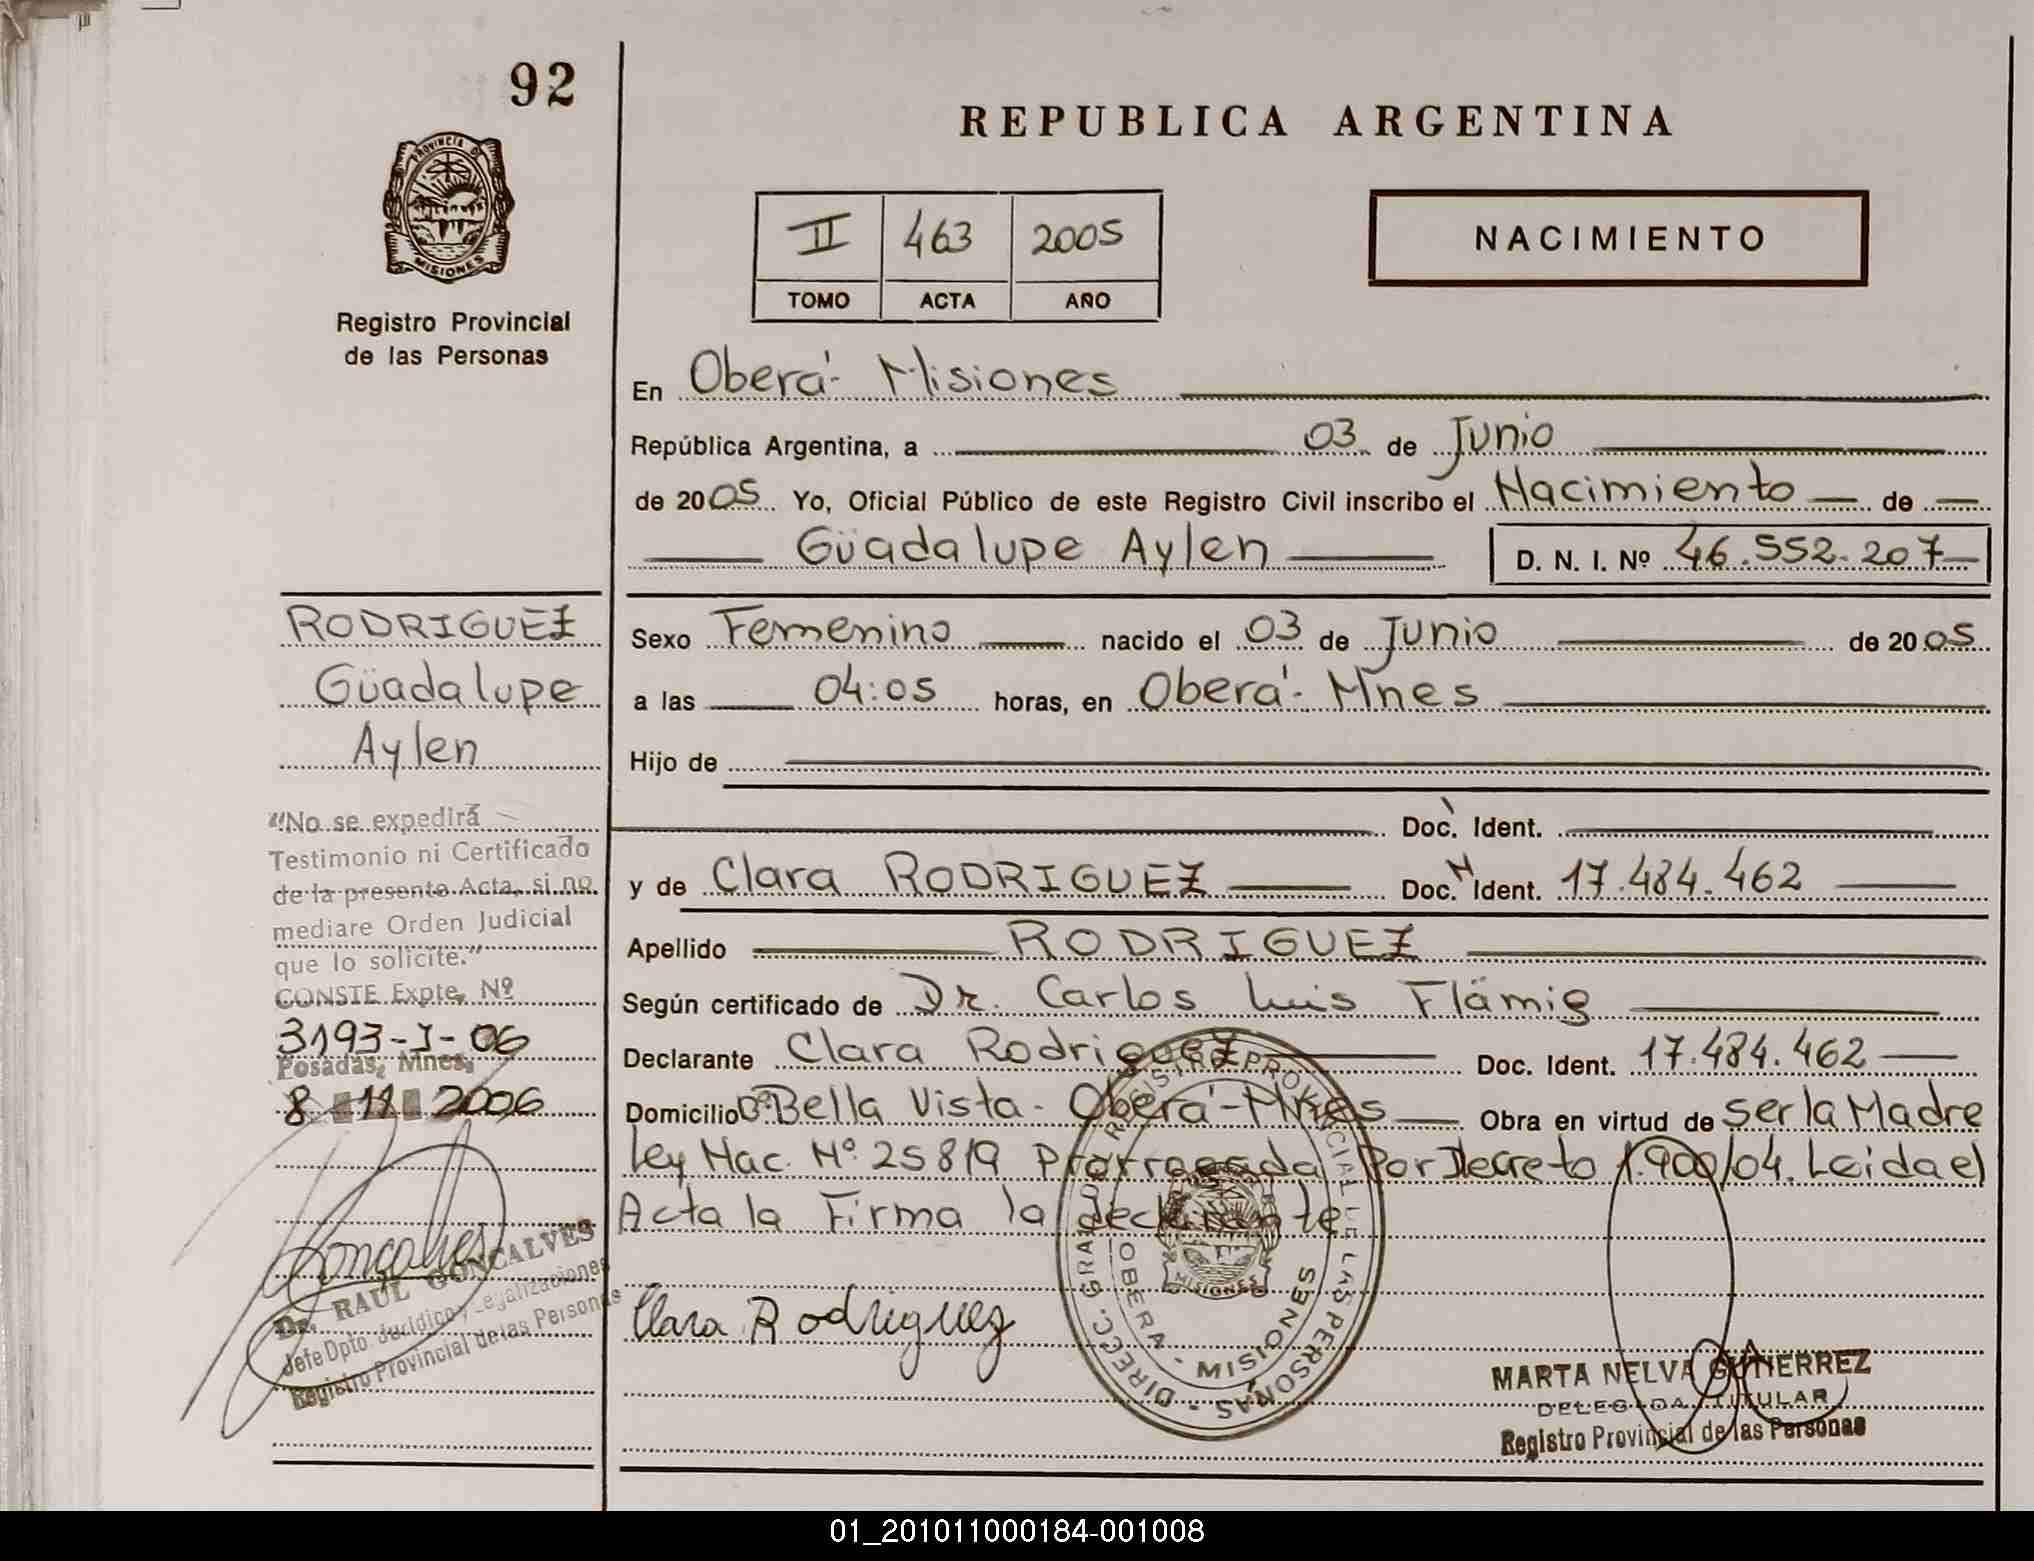 92
PROVINCIA DE
MISIONES
Registro Provincial
de las Personas
REPUBLICA ARGENTINA
II 463 2005
TOMO ACTA AÑO
NACIMIENTO
En Oberá - Misiones
República Argentina, a 03 de Junio
de 2005 Yo, Oficial Público de este Registro Civil inscribo el Nacimiento de
Güadalupe Aylen D. N. I. Nº 46.552.207
RODRIGUEZ
Güadalupe
Aylen
Sexo Femenino nacido el 03 de Junio de 2005
a las 04:05 horas, en Oberá - Mnes
Hijo de
Doc. Ident.
y de Clara RODRIGUEZ Doc. N Ident. 17.484.462
Apellido RODRIGUEZ
Según certificado de Dr. Carlos Luis Flämig
Declarante Clara Rodriguez Doc. Ident. 17.484.462
Domicilio Bº Bella Vista - Oberá - Mnes Obra en virtud de ser la Madre
Ley Nac. Nº 25819 Prorrogada Por Decreto 1.900/04. Leida el
Acta la Firma la declarante
Clara Rodriguez
"No se expedirá
Testimonio ni Certificado
de la presente Acta, si no
mediare Orden Judicial
que lo solicite."
CONSTE Expte, Nº
3193-J-06
Posadas, Mnes,
8 11 2006
Goncalves
Dr. RAUL GONCALVES
Jefe Dpto. Jurídico y Legalizaciones
Registro Provincial de las Personas
DIRECC. GRAL. DE REGISTRO PROVINCIAL DE LAS PERSONAS
OBERA - MISIONES
MISIONES
MARTA NELVA GUTIERREZ
DELEGADA TITULAR
Registro Provincial de las Personas
01_201011000184-001008